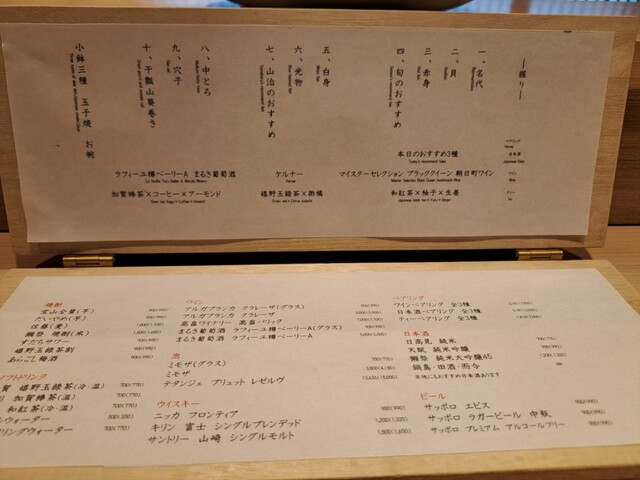 ―握り―
一、名代
二、貝
三、赤身
四、旬のおすすめ
五、白身
六、光物
七、山治のおすすめ
八、中とろ
九、穴子
十、干瓢山葵巻き
小鉢三種 玉子焼 お椀
ペアリング
日本酒
本日のおすすめ3種
Today's recommend Sake
ワイン
マイスターセレクション ブラッククイーン 朝日町ワイン
ケルナー
ラフィーユ樽ベーリーA まるき葡萄酒
ティー
和紅茶×柚子×生姜
嬉野玉緑茶×柑橘
加賀棒茶×コーヒー×アーモンド
焼酎
宝山全量(芋) 900(990)
だいやめ(芋) 900(990)
佐藤(麦)
獺祭 焼酎(米)
すだちサワー 900(990)
嬉野玉緑茶割 900(990)
あらごし梅酒 900(990)
ソフトドリンク
嬉野玉緑茶(冷・温) 700(770)
加賀棒茶(温) 700(770)
和紅茶(冷・温) 700(770)
ウォーター
リングウォーター 700(770)
ワイン
アルガブランカ クラレーザ(グラス) 900(990)
アルガブランカ クラレーザ
高畠ワイナリー 高畠バリック
まるき葡萄酒 ラフィーユ樽ベーリーA(グラス)
まるき葡萄酒 ラフィーユ樽ベーリーA
泡
ミモザ(グラス) 700(770)
ミモザ
テタンジェ ブリュット レゼルヴ
ウイスキー
ニッカ フロンティア 900(990)
キリン 富士 シングルブレンデッド
サントリー 山崎 シングルモルト
ペアリング
ワインペアリング 全3種
日本酒ペアリング 全3種
ティーペアリング 全3種
日本酒
日高見 純米 700(770)
天賦 純米吟醸 900(990)
獺祭 純米大吟醸45
鍋島・田酒・而今
※他にもおすすめ日本酒あります
ビール
サッポロ エビス 900(990)
サッポロ ラガービール 中瓶 900(990)
サッポロ プレミアム アルコールフリー 900(990)